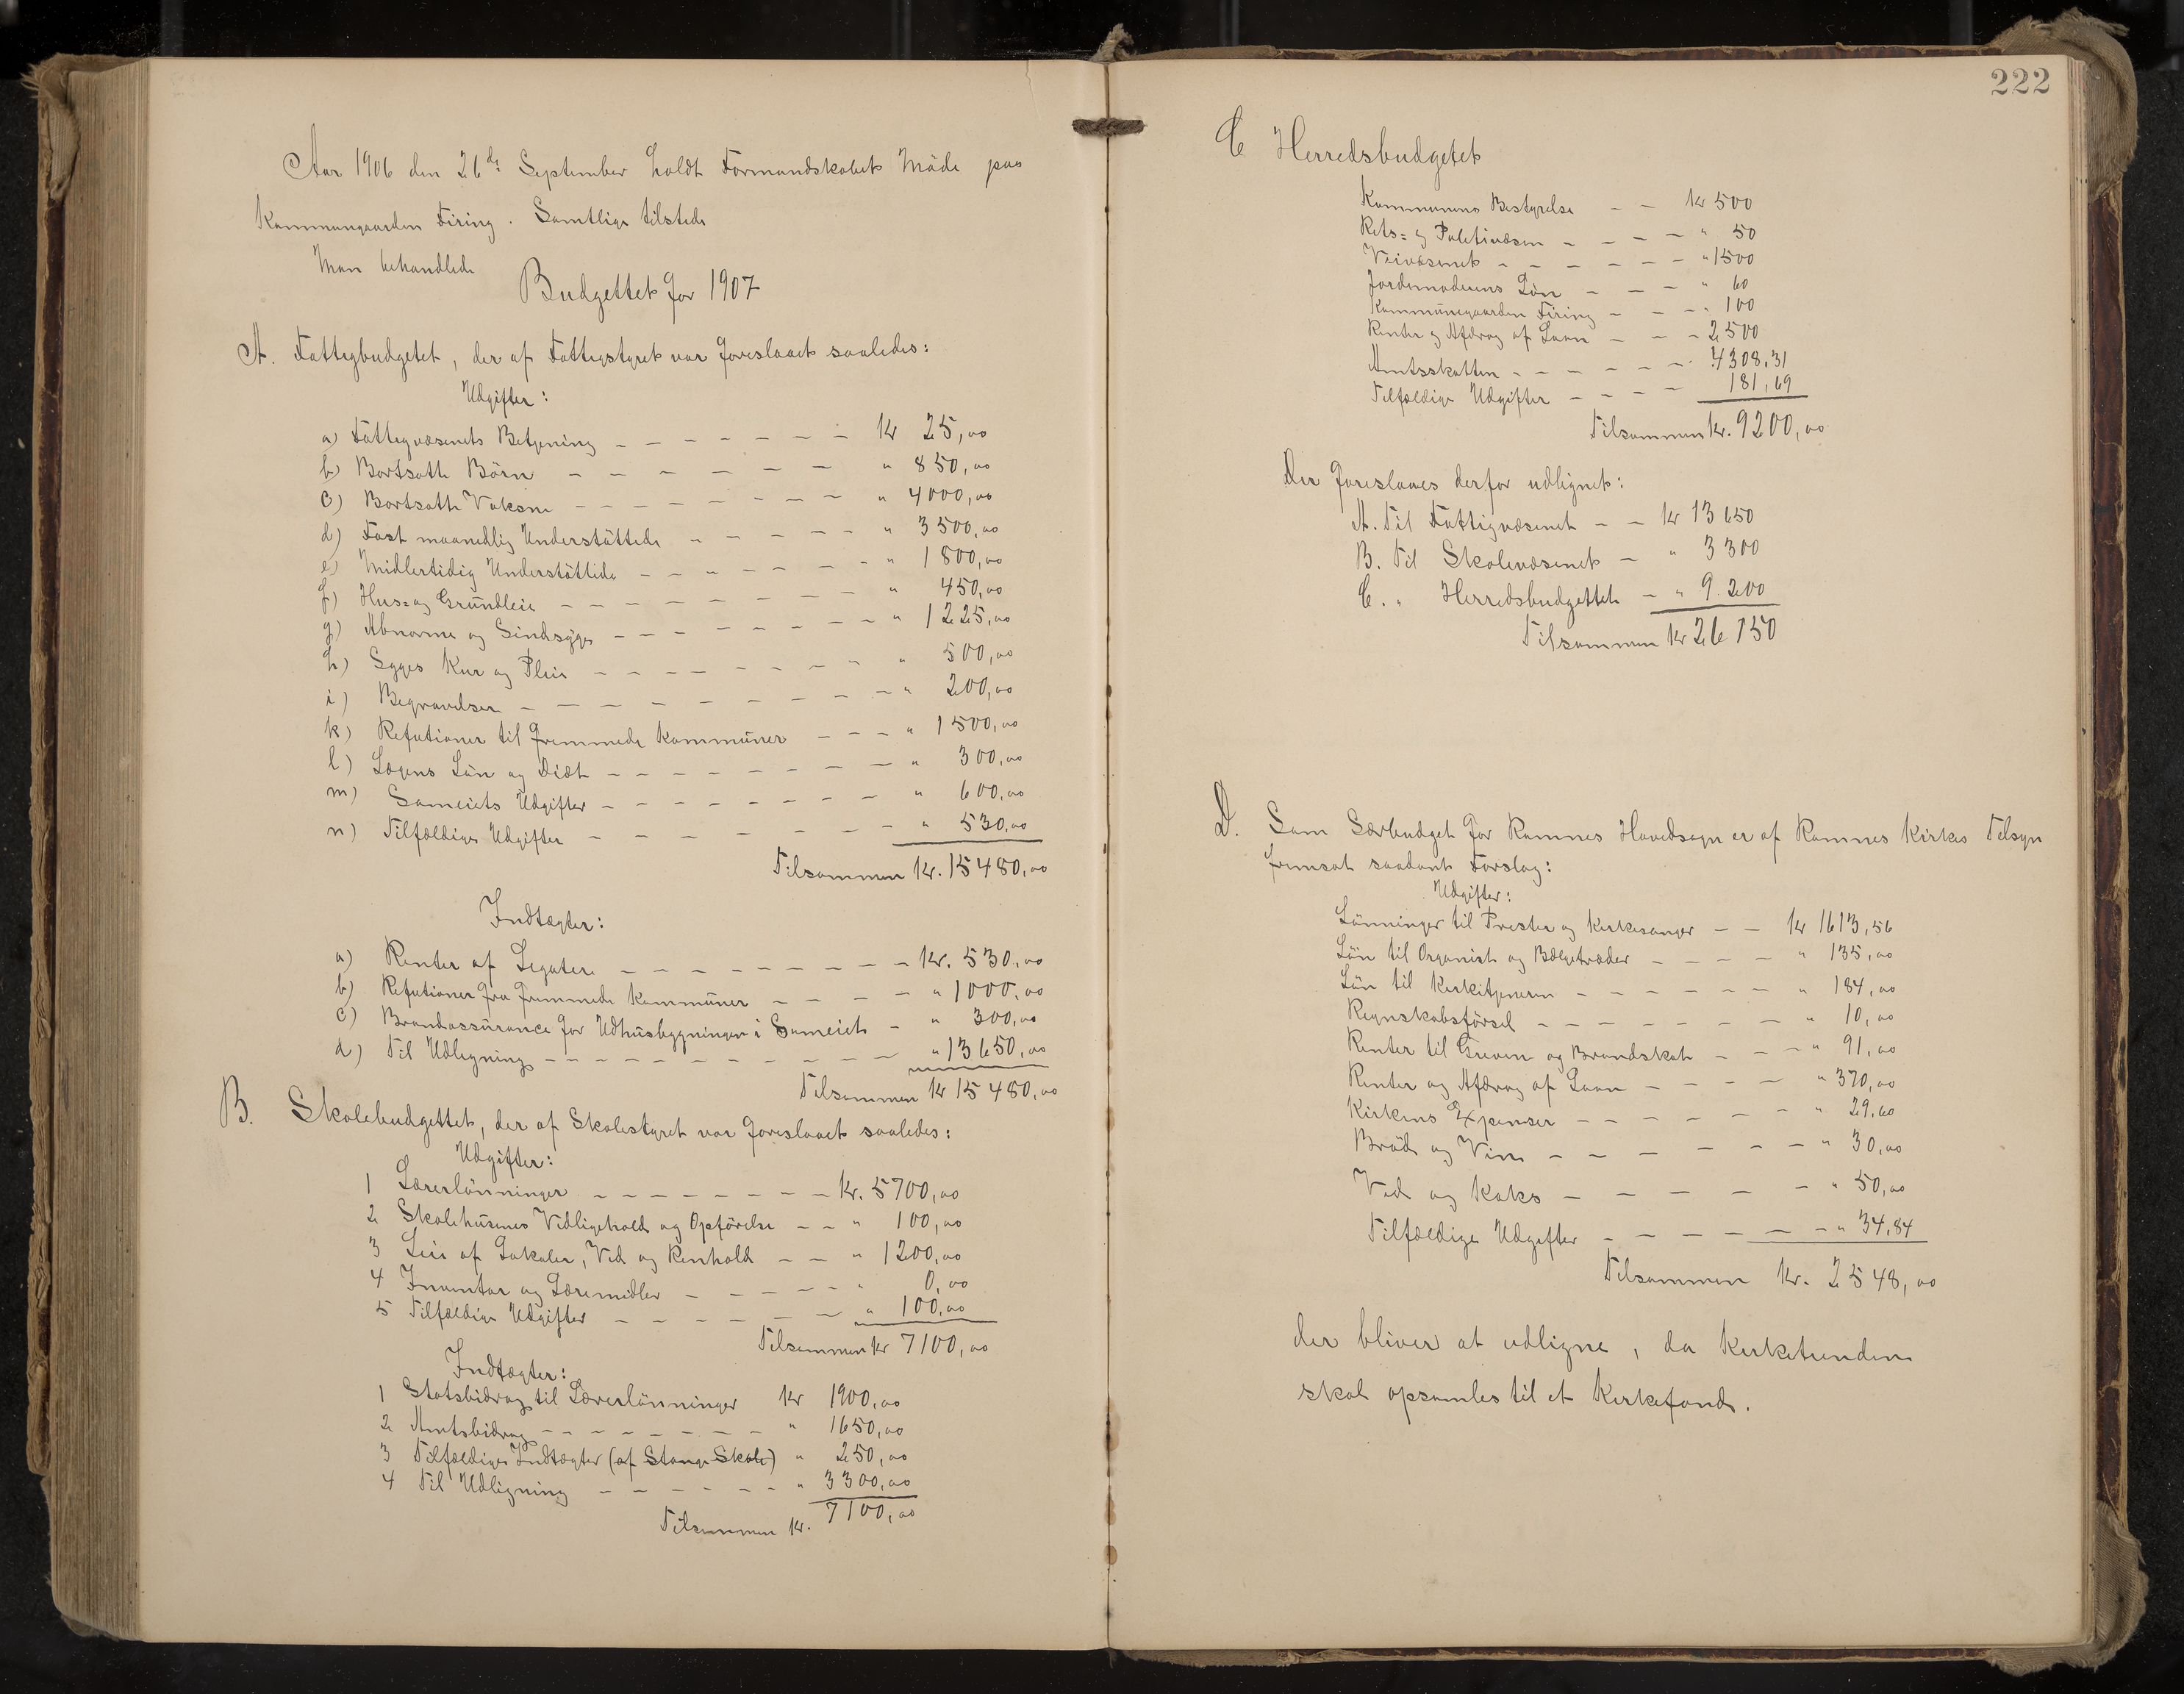 Aar 1906 den 26de September holdt Formandskabet Möde paa
Kommunegaarden Firing. Samtlige tilstede
Man behandlede
Budgettet for 1907
A. Fattigbudgetet, der af Fattigstyret var foreslaaet saaledes:
Udgifter:
a) Fattigvæsenets Betjening – – – – – – – Kr 25,00
b) Bortsatte Börn – – – – – – " 850,00
c) Bortsatte Voksne – – – – – – – " 4000,00
d) Fast maanedlig Understöttede – – – – – " 3500,00
e) Midlertidig Understöttede – – – – – – – " 1800,00
f) Hus= og Grundleie – – – – – – – – " 450,00
g) Abnorme og Sindsyge – – – – – – – – " 1225,00
h) Syges Kur og Pleie – – – – – – – " " 500,00
i) Begravelser – – – – – – – – – " 200,00
k) Refutioner til fremmede Kommuner – – – " 1500,00
l) Lægens Lön og Diæt – – – – – – – – " 300,00
m) Sameiets Udgifter – – – – – – – – " 600,00
n) Tilfældige Udgifter – – – – – – – – " 530,00
Tilsammen Kr. 15480,00
Indtægter:
a) Renter af Legater – – – – – – – – – Kr. 530,00
b) Refutioner fra fremmede Kommuner – – – – " 1000,00
c) Brandassurance for Udhusbygningen i Sameiet – " 300,00
d) Til Udligning – – – – – – – – – – – " 13650,00
Tilsammen Kr 15480,00
B. Skolebudgettet, der af Skolestyret var foreslaaet saaledes:
Udgifter:
1 Lærerlönninger – – – – – – – – Kr. 5700,00
2 Skolehusenes Vedligehold og Opförelse – – " 100,00
3 Leie af Lokaler, Ved og Renhold – – " 1200,00
4 Inventar og Læremidler – – – – – " 0,00
5 Tilfældige Udgifter – – – – – " 100,00
Tilsammen Kr 7100,00
Indtægter:
1 Statsbidrag til Lærerlönninger Kr 1900,00
2 Amtsbidrag – – – – – – – – " 1650,00
3 Tilfældige Indtægter (af Stange Skole) " 250,00
4 Til Udligning – – – – – – " 3300,00
Tilsammen Kr. 7100,00
222
C Herredsbudgetet
Kommunens Bestyrelse – – Kr 500
Rets= og Politivæsen – – – – " 50
Veivæsenet – – – – – – – " 1500
Jordemoderens Lön – – – " 60
Kommunegaarden Firing – – – " 100
Renter og Afdrag af Laan – – – 2500
Amtsskatten – – – – – – – " 4308,31
Tilfældige Udgifter – – – – 181,69
Tilsammen Kr. 9200,00
Der foreslaaes derfor udlignet:
A. Til Fattigvæsenet – – Kr 13650
B. Til Skolevæsenet – " 3300
C. " Herredsbudgettet – " 9.200
Tilsammen Kr 26150
D. Som Særbudget for Ramnes Hovedsogn er af Ramnes Kirkes Tilsyn
fremsat saadant Forslag:
Udgifter:
Lönninger til Prester og Kirkesanger – – Kr 1613,56
Lön til Organist og Bælgetræder – – – – " 135,00
Lön til Kirketjeneren – – – – – – " 184,00
Regnskabsförsel – – – – – – – " 10,00
Renter til Greven og Brandskat – – – " 91,00
Renter og Afdrag af Laan – – – – " 370,00
Kirkens Expenser – – – – – – " 29,60
Bröd og Vin – – – – – – " 30,00
Ved og Koks – – – – – " 50,00
Tilfældige Udgifter – – – – – – " 34,84
Tilsammen Kr. 2548,00
der bliver at udligne, da Kirketienden
skal opsamles til et Kirkefond.